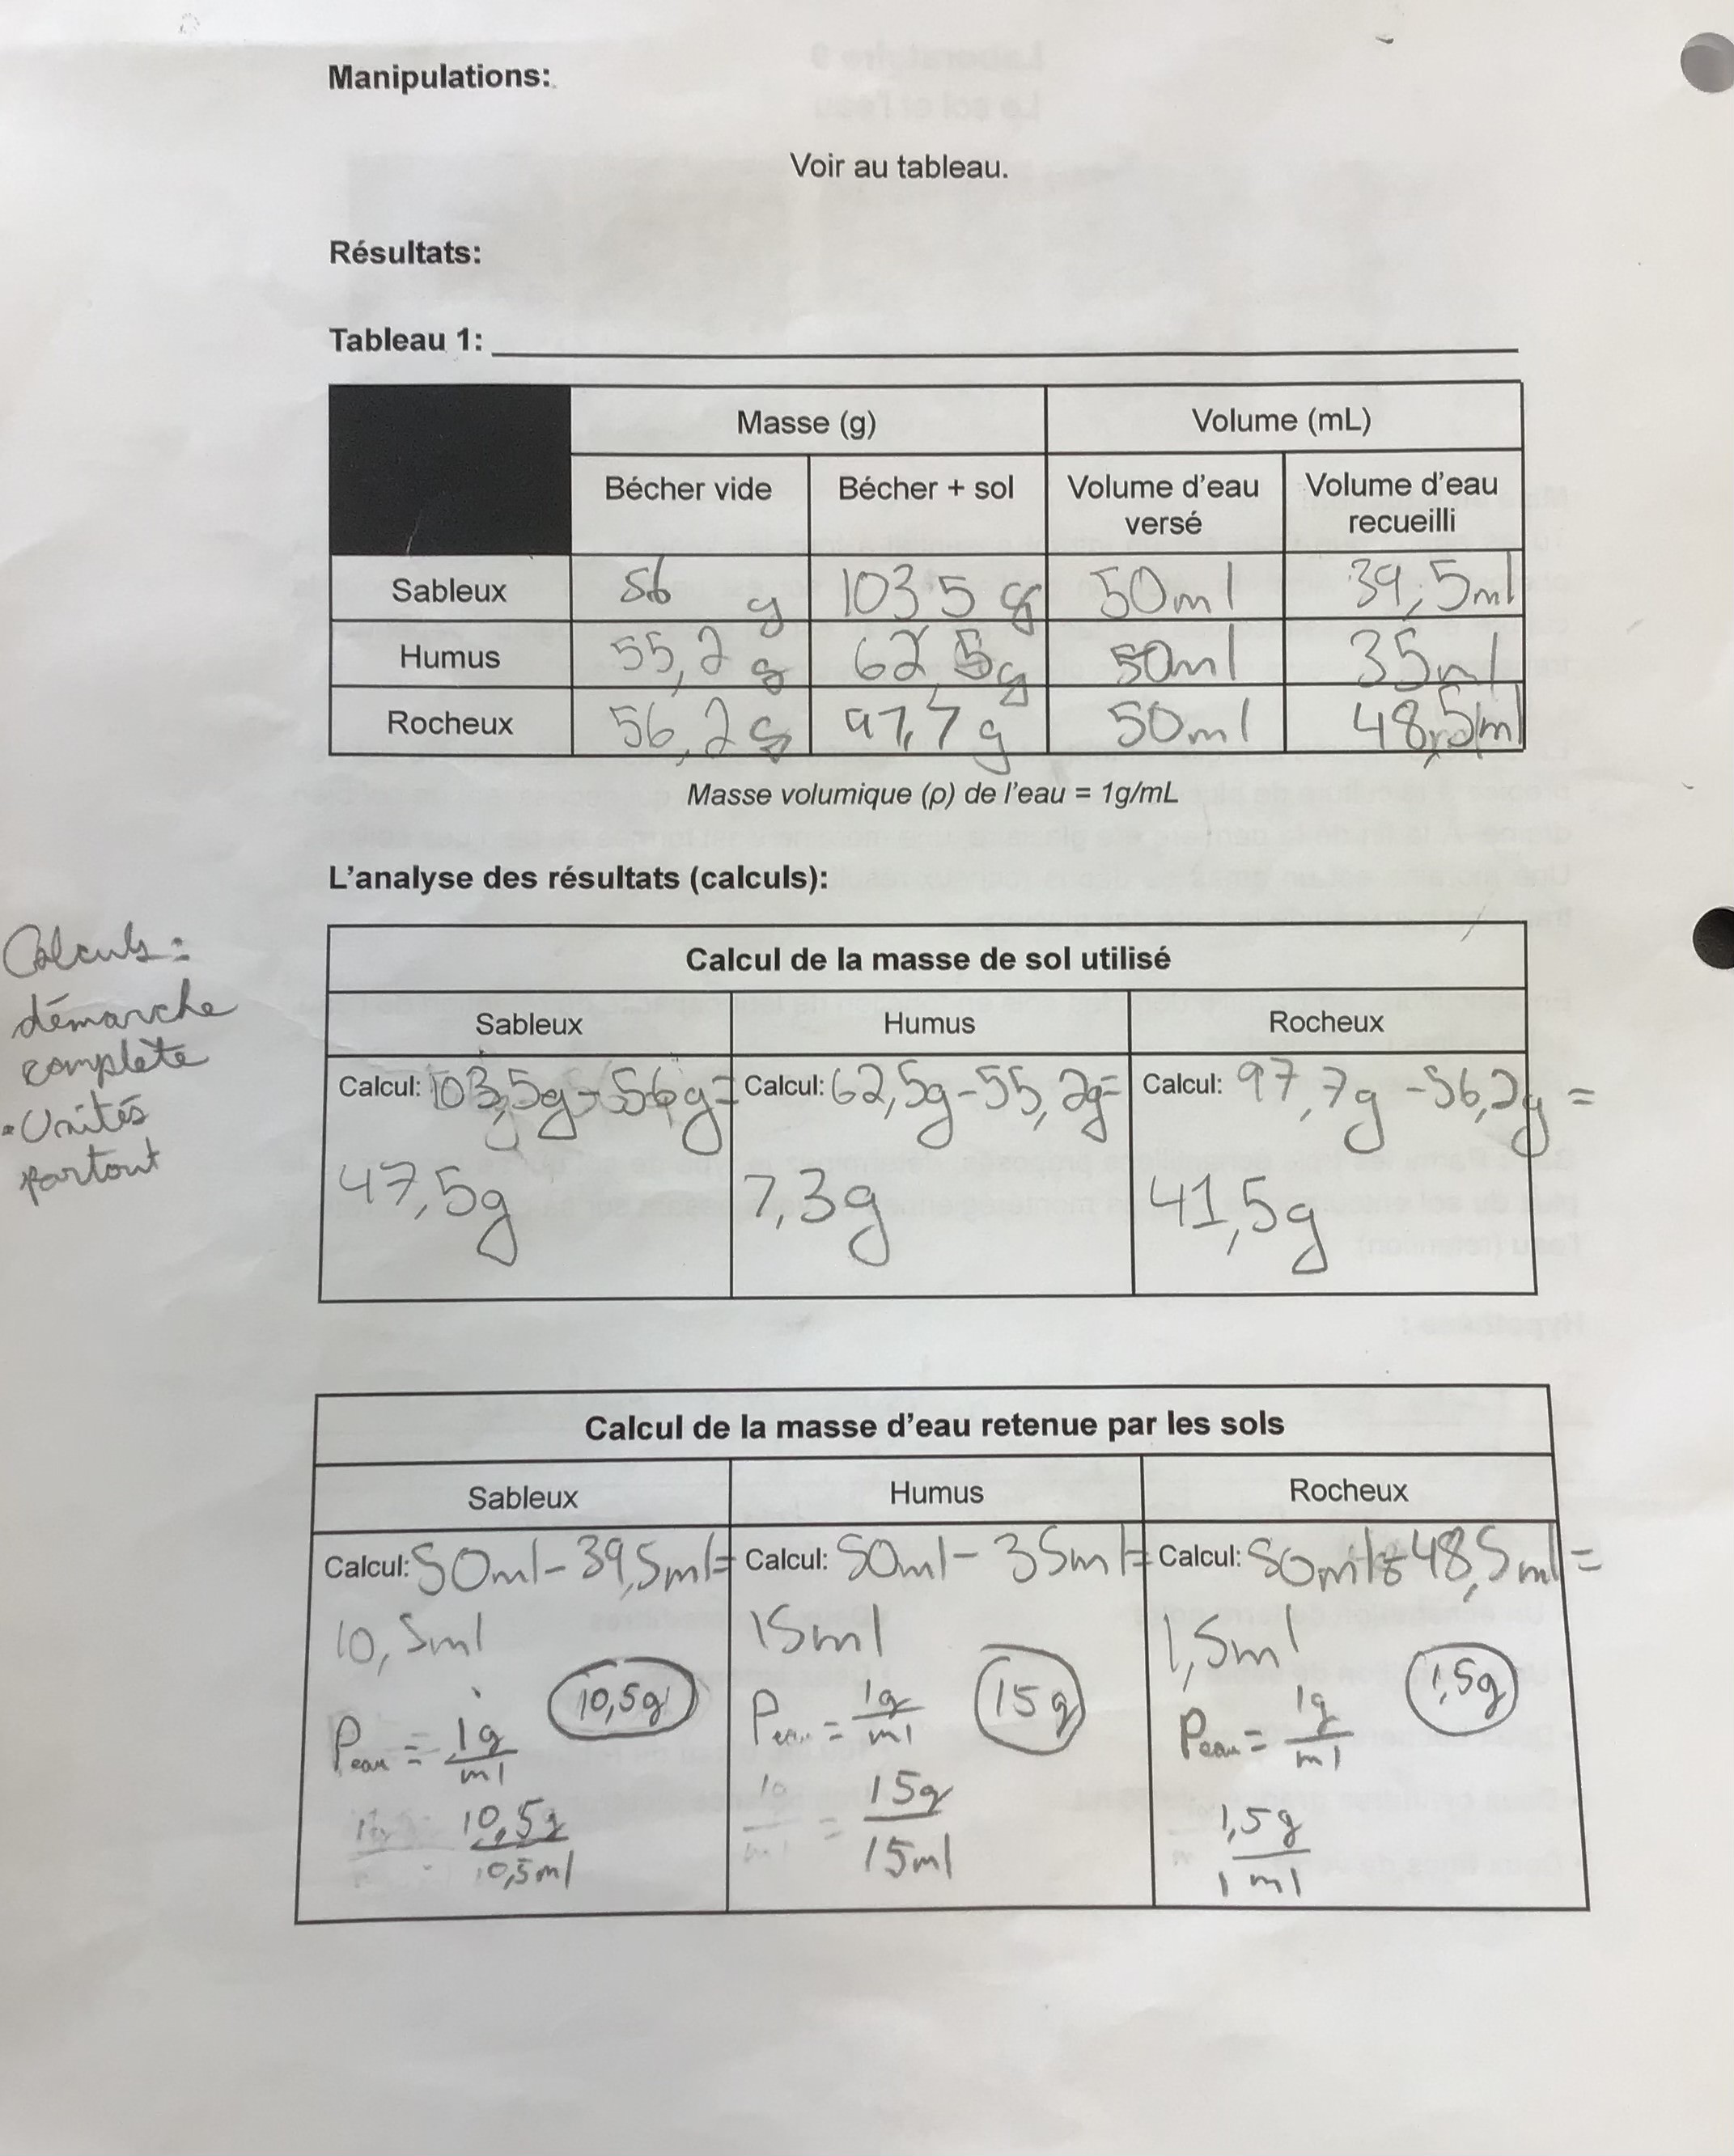 Manipulations:
Voir au tableau.
Résultats:
Tableau 1:
Masse (g) Volume (mL)
Bécher vide Bécher + sol Volume d'eau versé Volume d'eau recueilli
Sableux 56 g 103,5 g 50ml 39,5ml
Humus 55,2 g 62,5g 50ml 35ml
Rocheux 56,2g 97,7 g 50ml 48,5ml
Masse volumique (ρ) de l'eau = 1g/mL
L'analyse des résultats (calculs):
Calculs:
démarche
complète
• Unités
partout
Calcul de la masse de sol utilisé
Sableux Humus Rocheux
Calcul: 103,5g - 56g = Calcul: 62,5g - 55,2g = Calcul: 97,7g - 56,2g =
47,5g 7,3g 41,5g
Calcul de la masse d'eau retenue par les sols
Sableux Humus Rocheux
Calcul: 50ml - 39,5ml = Calcul: 50ml - 35ml = Calcul: 50ml - 48,5ml =
10,5ml 15ml 1,5ml
10,5g 15g 1,5g
Peau = 1g/ml Peau = 1g/ml Peau = 1g/ml
10,5g/10,5ml 1g/ml = 15g/15ml 1,5g/1 ml